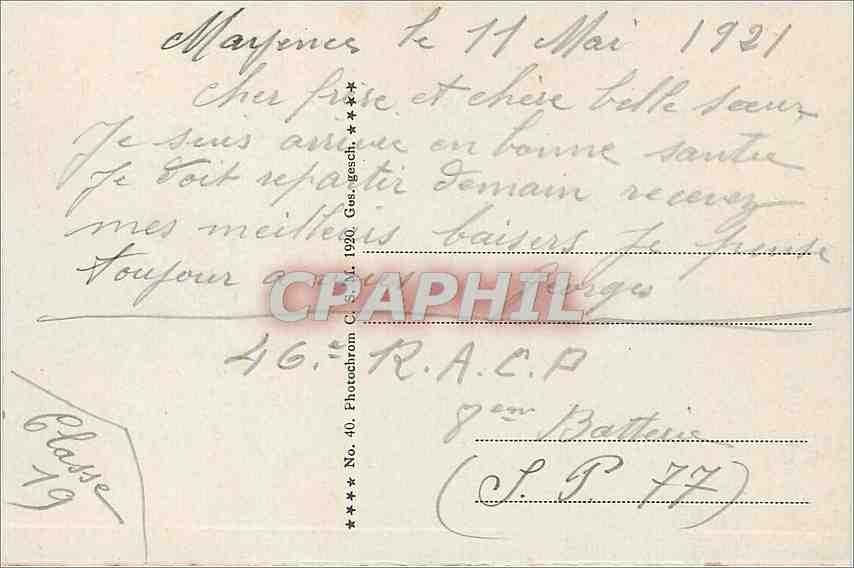 Mayence le 11 Mai 1921
Cher frère et chère belle sœur
Je suis arrivée en bonne santée
Je doit repartir demain recevez
mes meilleurs baisers Je pense
toujour a vous Georges
46.e R.A.C.P
8em Batterie
(S. P. 77)
Classe
19
★★★★ No. 40. Photochrom C. S. M. 1920. Ges. gesch. ★★★★
CPAPHIL